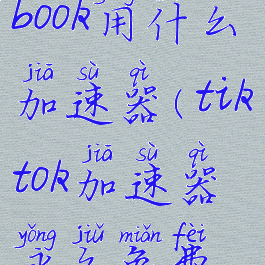 book用什么
jiā sù qì
加速器(tik
jiā sù qì
tok加速器
yǒng jiǔ miǎn fèi
永久免费